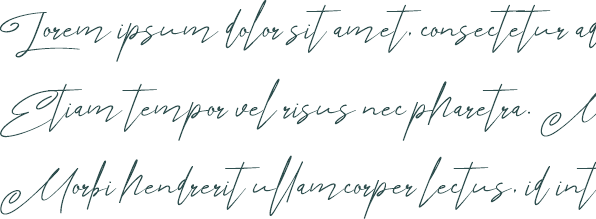 Lorem ipsum dolor sit amet, consectetur ad
Etiam tempor vel risus nec pharetra. M
Morbi hendrerit ullamcorper lectus, id int